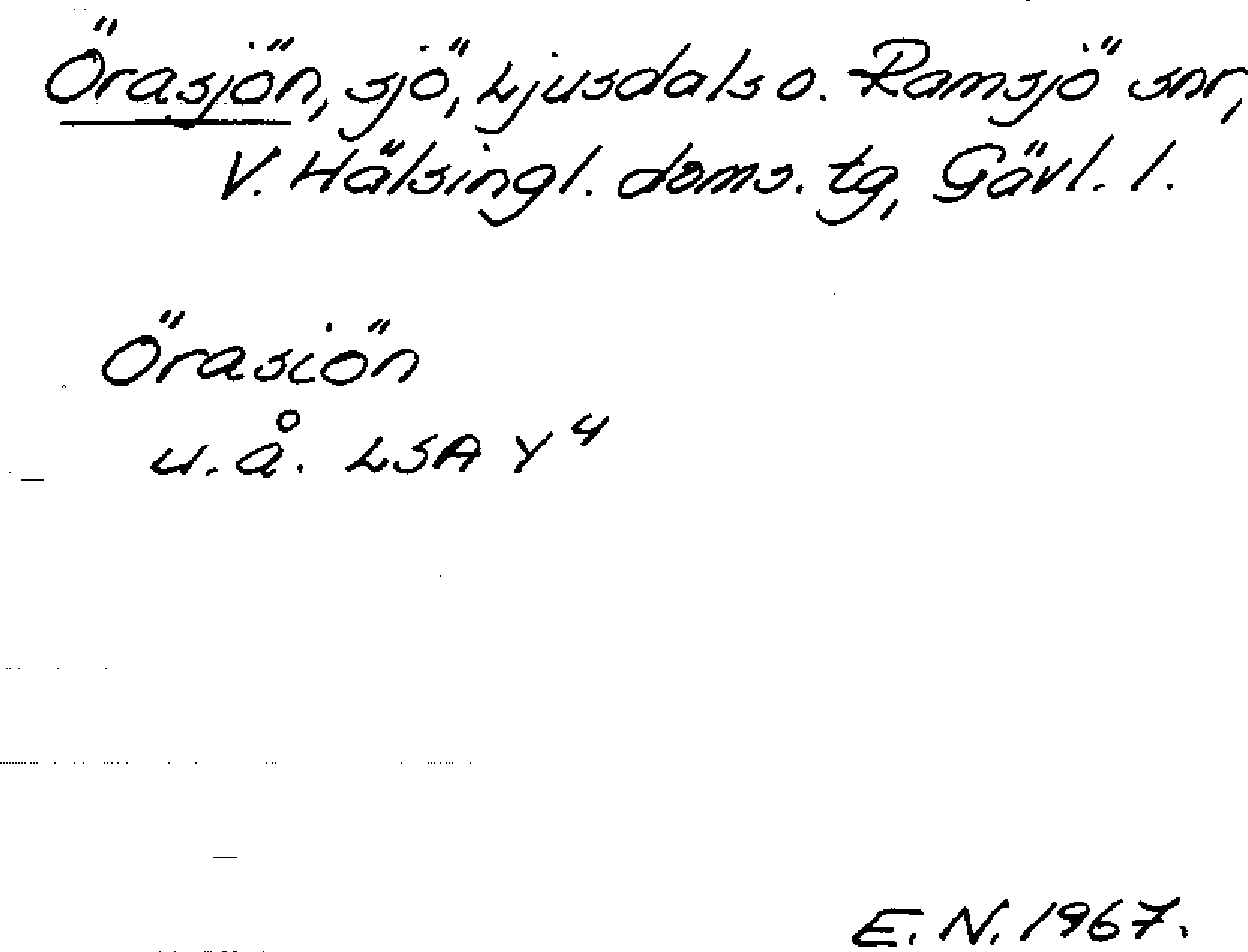 Örasjön, sjö, Ljusdals o. Ramsjö snr,
V. Hälsingl. doms. tg, Gävl. l.
Örasiön
u.å. LSA Y⁴
E. N. 1967.